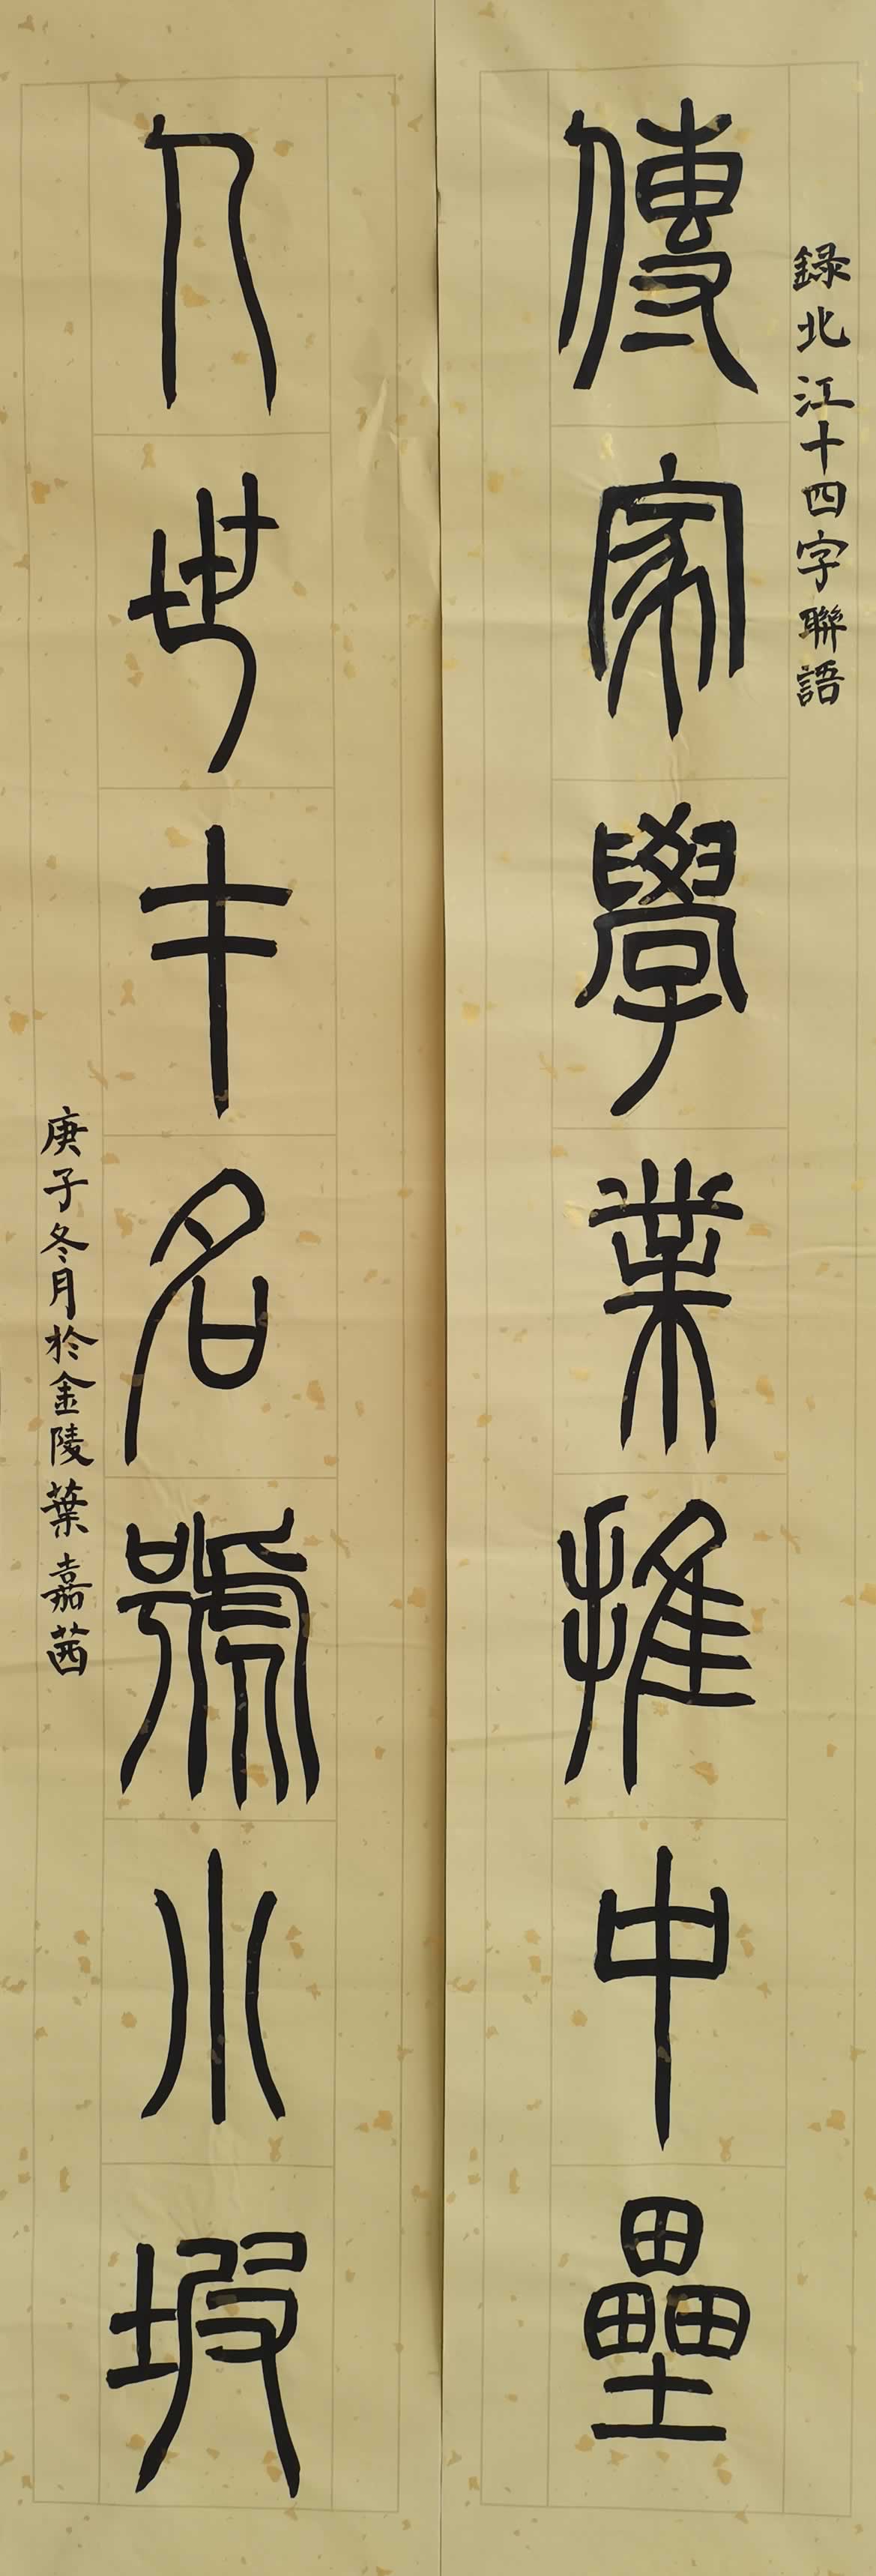 録北江十四字聯語
傳家學業推中壘
入世才名號小坡
庚子冬月於金陵葉嘉茜